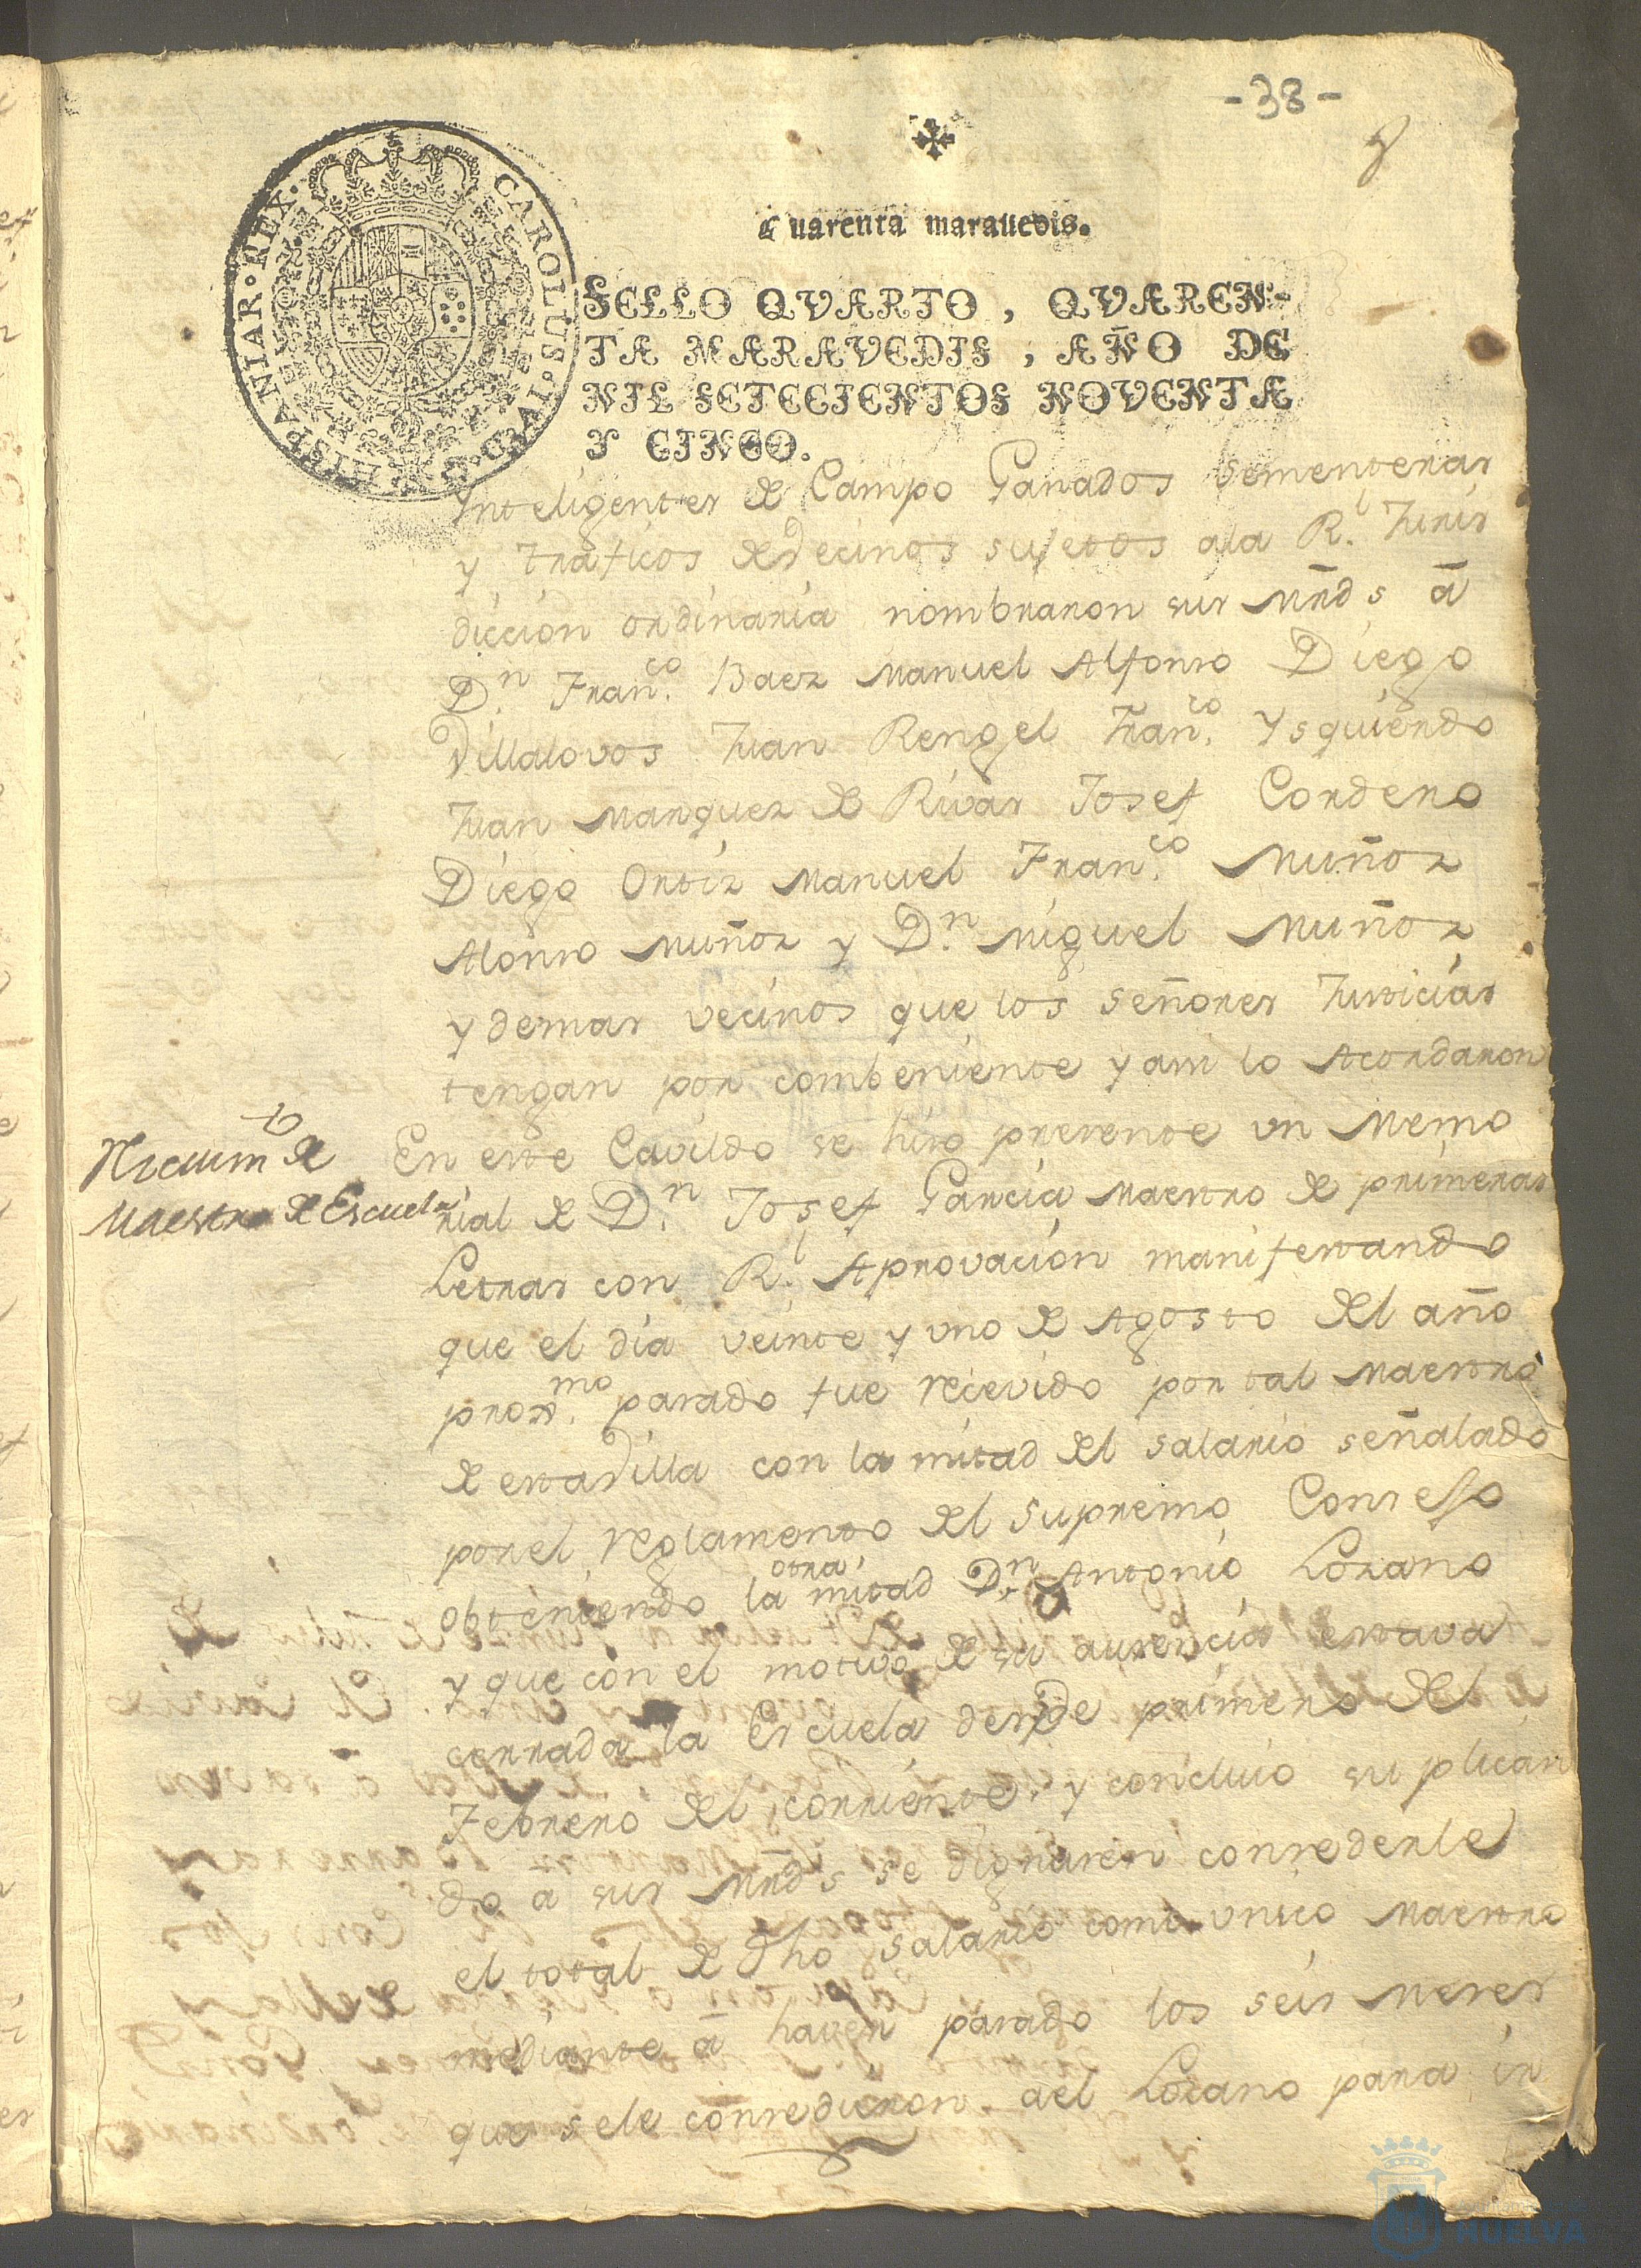 -38-
Cuarenta maravedis.
CAROLUS·IV·D·G·HISPANIAR·REX·
SELLO QVARTO, QVAREN-
TA MARAVEDIS, AÑO DE
MIL SETECIENTOS NOVENTA
Y CINCO.
Ynteligentes de Campo Ganados sementeras
y traficos de vecinos sujetos ala R.l Juris
diccion ordinaria nombraron sus Mrds ã
D.n Fran.co Baez Manuel Alfonso Diego
Villalovos Juan Rengel Fran.co Ysquierdo
Juan Marquez de Rivas Josef Cordero
Diego Ortiz Manuel Fran.co Muñoz
Alonso Muñoz y D.n Miguel Muñoz
y demas vecinos que los señores Justicias
tengan por combeniente y assi lo Acordaron
En este Cavildo se hiso presente un Memo
rial de D.n Josef Garcia Maestro de primeras
Maestro de Escuela
Letras con R.l Aprovacion manifestando
que el dia veinte y uno de Agosto del año
prox.mo pasado fue recevido por tal Maestro
de esta Villa con la mitad del salario señalado
por el reglamento del supremo Consejo
obteniendo la otra mitad D.n Antonio Lozano
y que con el motivo de su ausencia estava
cerrada la Escuela desde primero del
Febrero del corriente y concluio suplican
do a sus Mrds se dignasen consederle
el total de dho salario como unico Maestro
mediante ã haver pasado los seis meses
que sele consedieron ael Lozano para ir
HUELVA